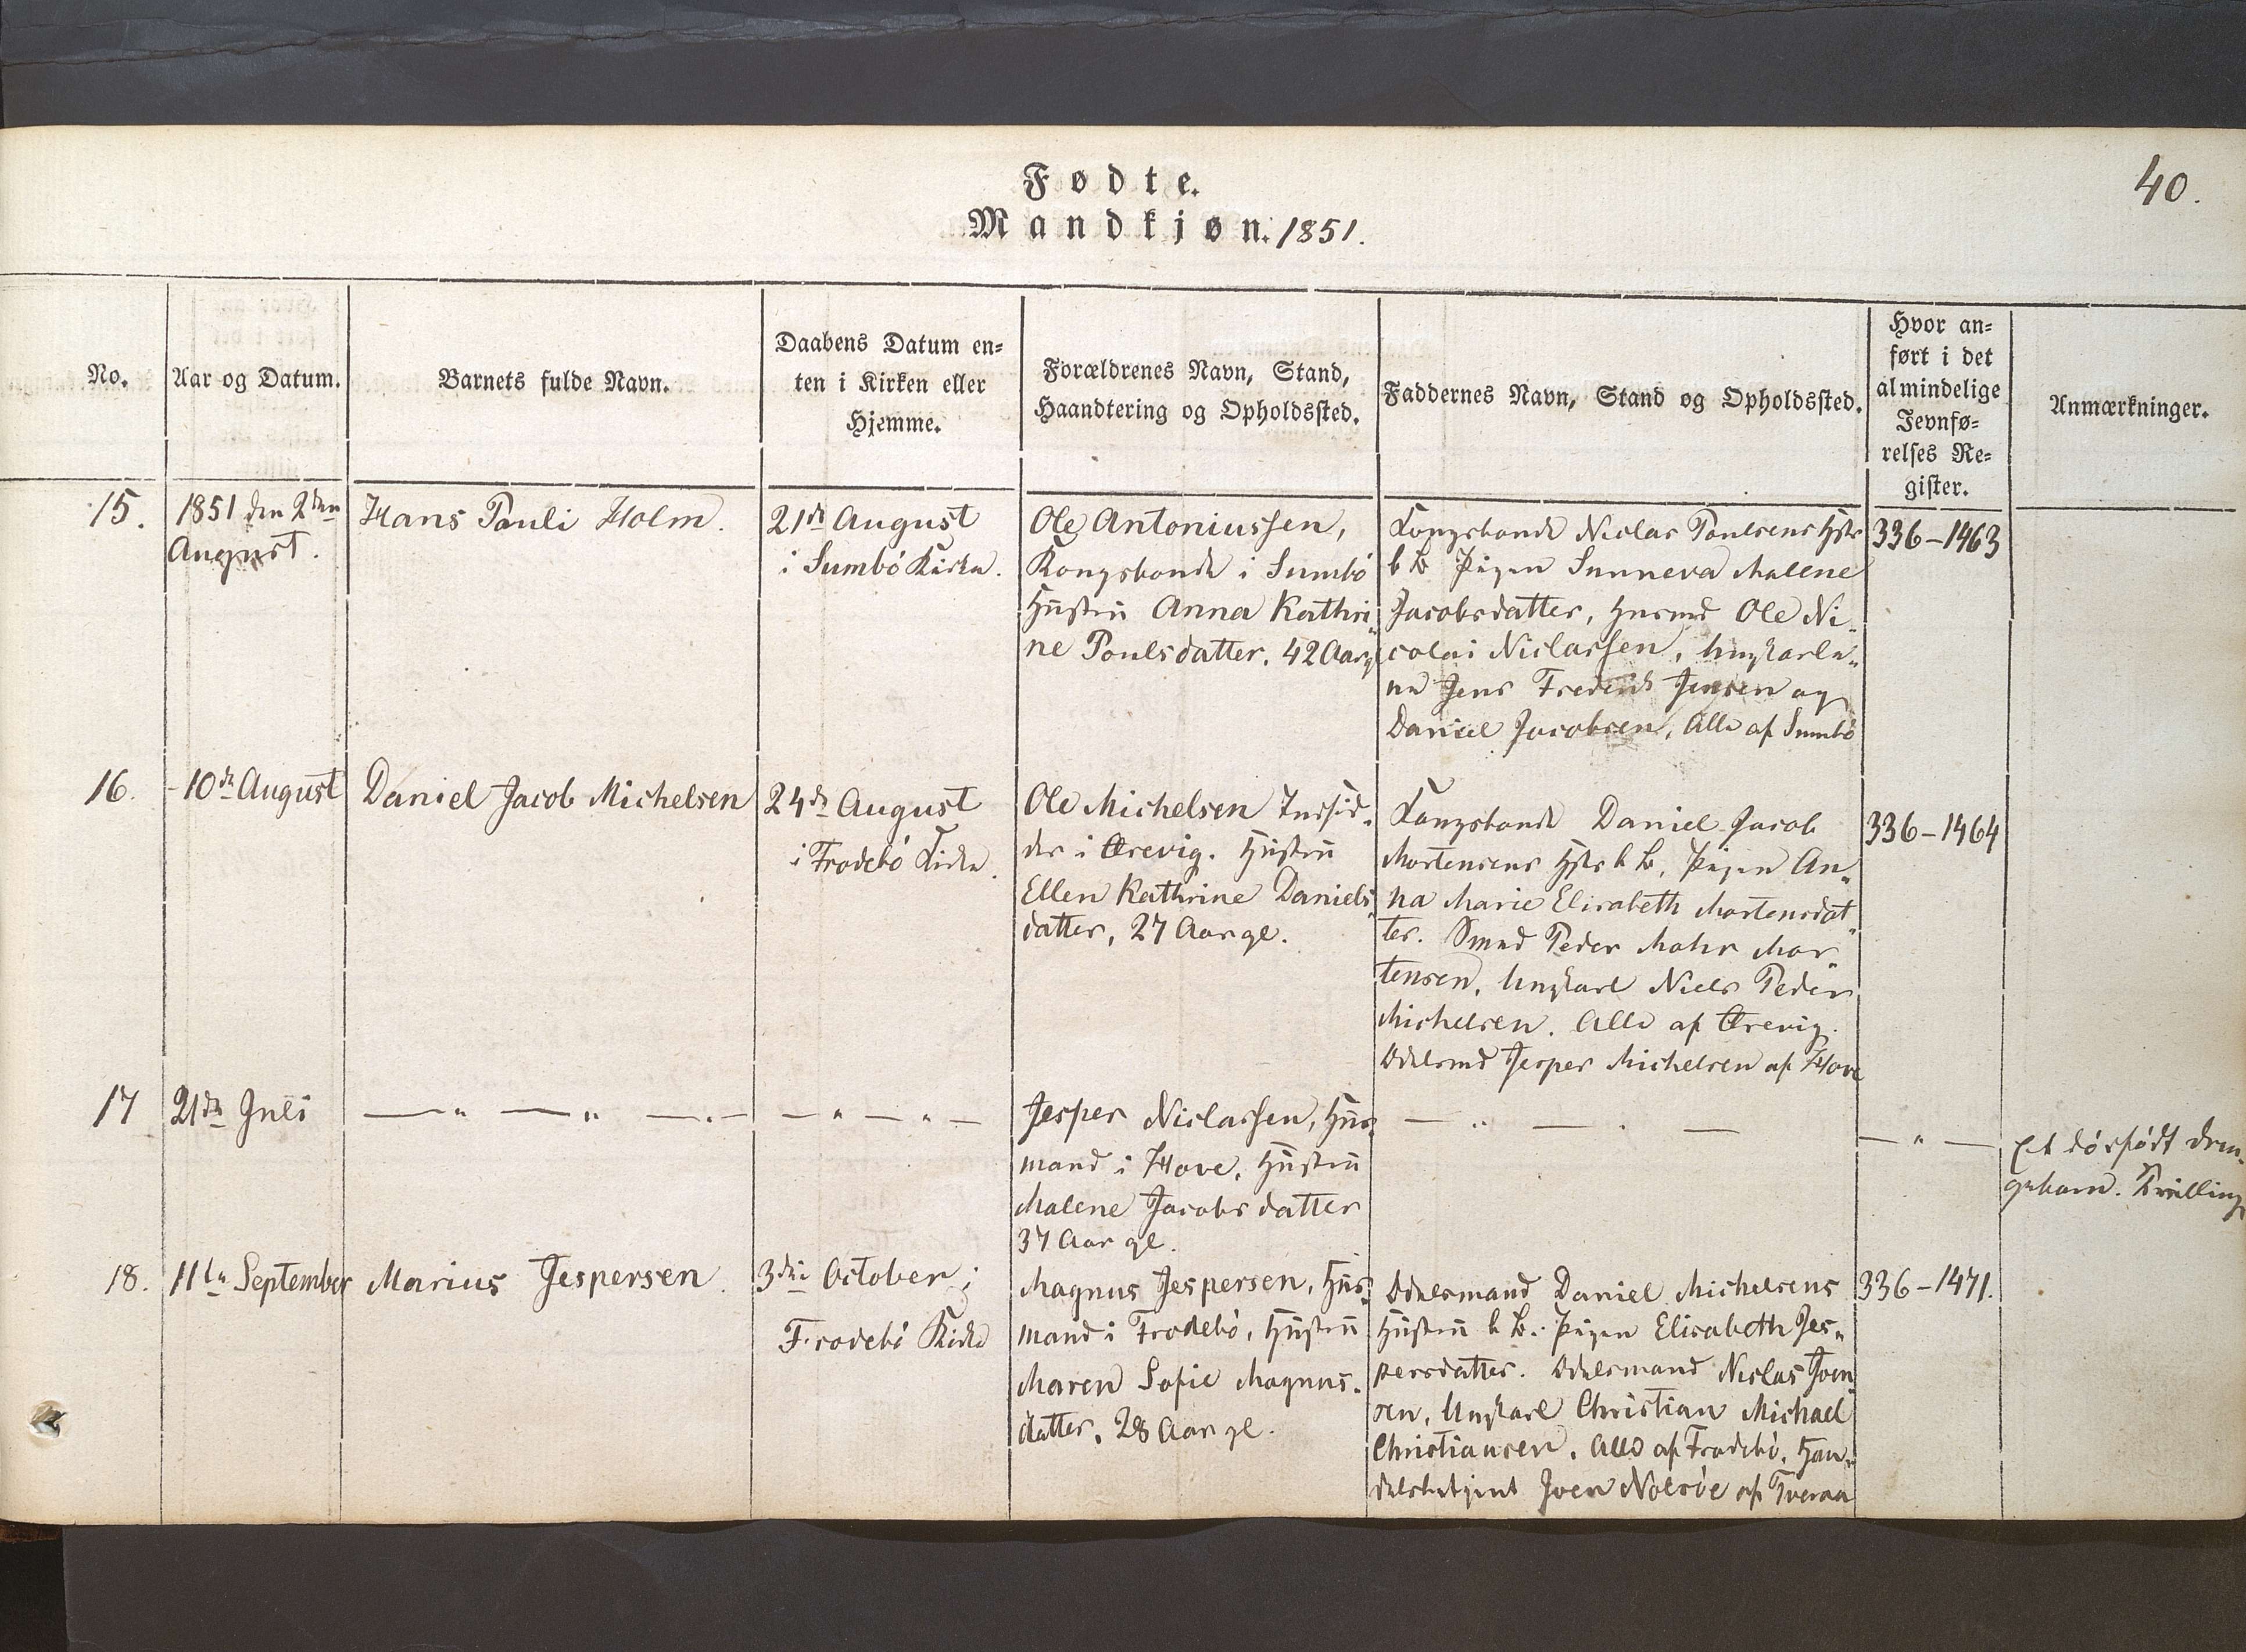 40.
Fødte.
Mandkjøn. 1851.
No.
Aar og Datum.
Barnets fulde Navn.
Daabens Datum en=
ten i Kirken eller
Hjemme.
Forældrenes Navn, Stand,
Haandtering og Opholdssted.
Faddernes Navn, Stand og Opholdssted.
Hvor an=
ført i det
almindelige
Jevnfø=
relses Re=
gister.
Anmærkninger.
15.
1851 den 2den
August.
Hans Pauli Holm.
21de August
i Sumbö Kirke.
Ole Antoniussen,
Kongsbonde i Sumbö
Hustru Anna Kathri„
ne Poulsdatter. 42 Aar gl
Kongsbonde Niclas Poulsens Hstr
b. B. Pigen Sunneva Malene
Jacobsdatter, Husmd Ole Ni„
colai Niclassen, Ungkarle„
ne Jens Frederik Jensen og
Daniel Jacobsen, Alle af Sumbö
336-1463
16.
- 10de August
Daniel Jacob Michelsen
24de August
i Frodebö Kirke.
Ole Michelsen Indsid„
der i Ørevig. Hustru
Ellen Kathrine Daniels„
datter, 27 Aar gl.
Kongsbonde Daniel Jacob
Mortensens Hstr b. B. Pigen An„
na Marie Elisabeth Mortensdat„
ter. Smed Peder Mohr Mor„
tensen, Ungkarl Niels Peder
Michelsen. Alle af Ørevig.
Odelsmd Jesper Michelsen af Hove
336-1464
17
21de Juli
— „ — „ — „ —
— „ — „ —
Jesper Niclassen, Hus„
mand i Hove, Hustru
Malene Jacobsdatter
37 Aar gl.
— „ — „ —
— „ —
Et dödfödt Dren„
gebarn. Tvilling
18.
11te September
Marius Jespersen.
3die October i
Frodebö Kirke
Magnus Jespersen, Hus„
mand i Frodebö, Hustru
Maren Sofie Magnus„
datter, 28 Aar gl.
Odelsmand Daniel Michelsens
Hustru b. B. Pigen Elisabeth Jes„
persdatter. Odelsmand Niclas Joen„
sen, Ungkarl Christian Michael
Christiansen. Alle af Frodebö, Han„
delsbetjent Joen Nolsöe af Tveraa
336-1471.